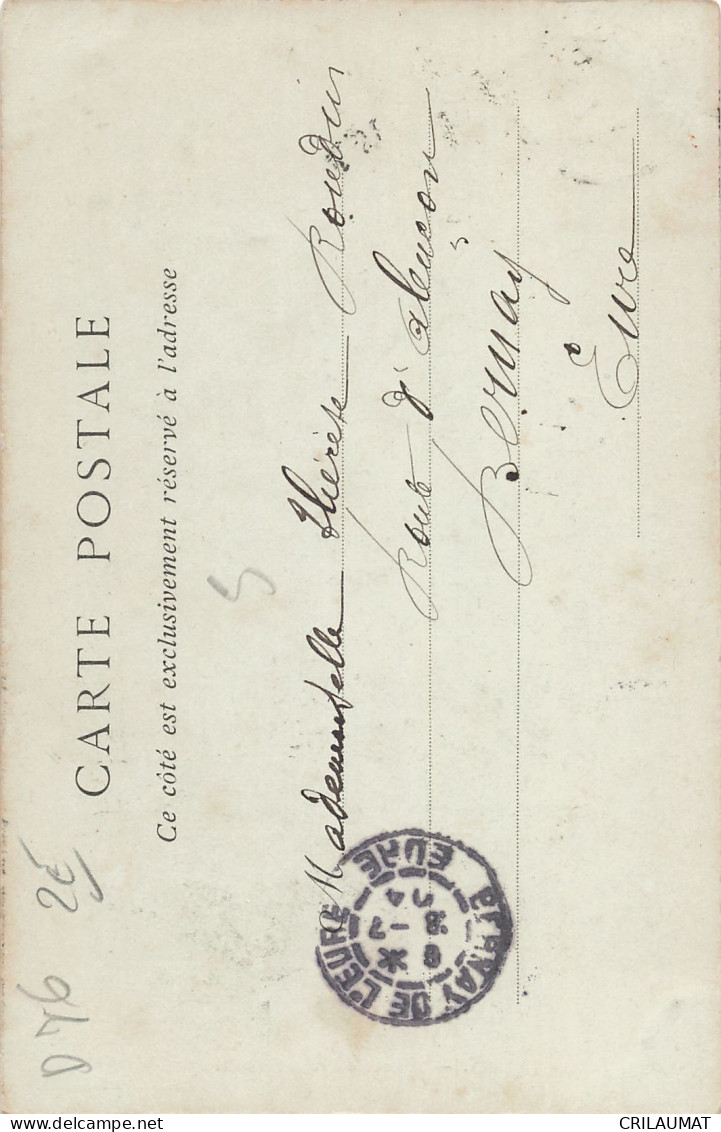 CARTE POSTALE
Ce côté est exclusivement réservé à l'adresse
Mademoiselle Thérèse
Route d'alençon
Bernay
Eure
NAY DE L'EURE
EURE
8
8 -7
04
D 76
2€
CRILAUMAT